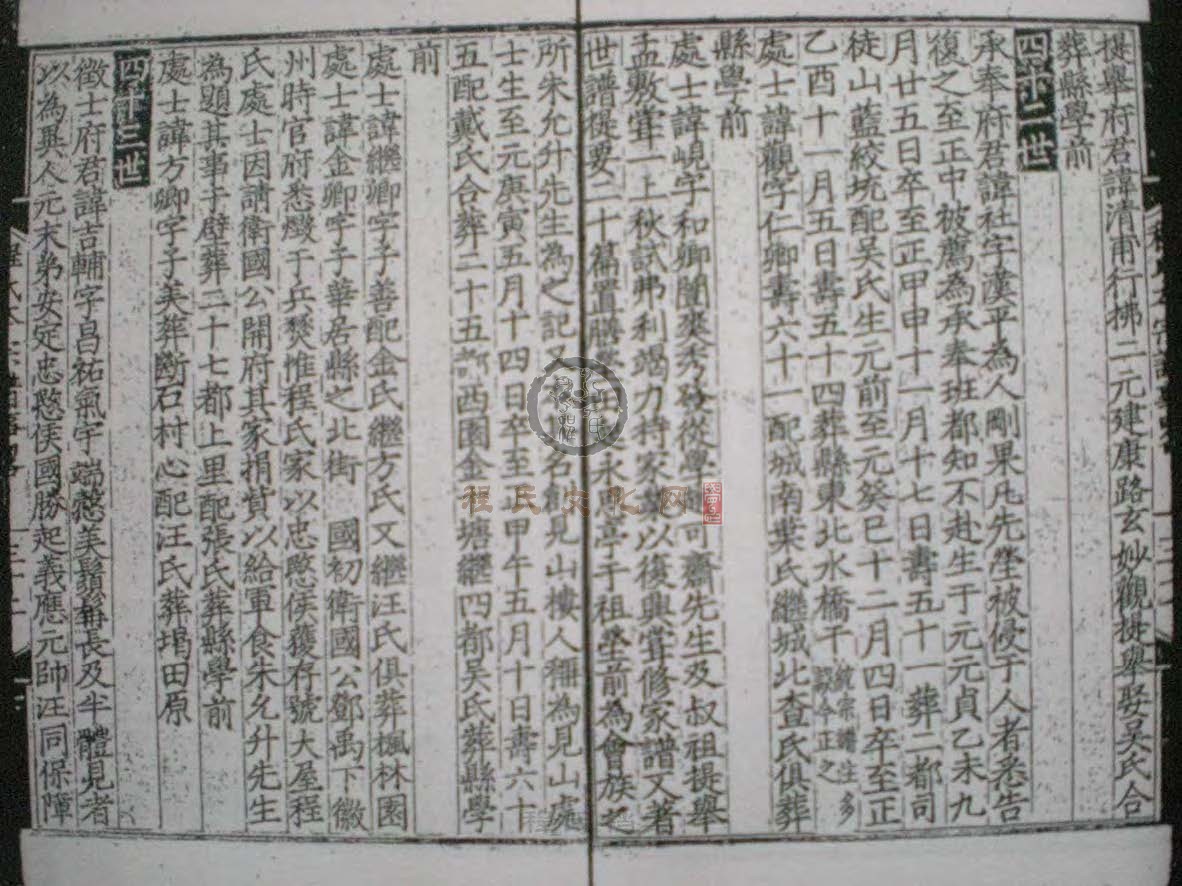 提舉府君諱清甫行拂二元建康路玄妙觀提舉娶吳氏合
葬縣學前
四十二世
承奉府君諱社字漢平為人剛果凡先塋被侵于人者悉告
復之至正中被薦為承奉班都知不赴生于元元貞乙未九
月廿五日卒至正甲申十一月十七日壽五十一葬二都司
徒山藍紋坑配吳氏生元前至元癸巳十二月四日卒至正
乙酉十一月五日壽五十四葬縣東北水橋干
誤今正之
處士諱觀字仁卿壽六十一配城南葉氏繼城北查氏俱葬
縣學前
處士諱峴字和卿闓爽秀發從學可齋先生及叔祖提舉
孟敷嘗一上秋試弗利竭力持家以復興嘗修家譜又著
世譜提要二十篇置膳永思亭于祖塋前為會族之
所朱允升先生為之記名創見山樓人稱為見山處
士生至元庚寅五月十四日卒至甲午五月十日壽六十
五配戴氏合葬二十五都西園金塘繼四都吳氏葬縣學
前
處士諱繼卿字子善配金氏繼方氏又繼汪氏俱葬楓林園
處士諱金卿字子華居縣之北街 國初衛國公鄧禹下徽
州時官府悉燬于兵焚惟程氏家以忠愍侯獲存號大屋程
氏處士因請衛國公開府其家捐貲以給軍食朱允升先生
為題其事于壁葬二十七都上里配張氏葬縣學前
處士諱方卿字子美葬斷石村心配汪氏葬塌田原
四十三世
徵士府君諱吉輔字昌祐氣宇端慤美鬚髯長及半體見者
以為異人元末弟安定忠愍侯國勝起義應元帥汪同保障
程氏文化网